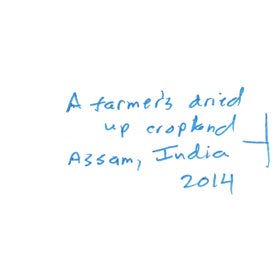 A farmer's dried
up cropland
Assam, India
2014